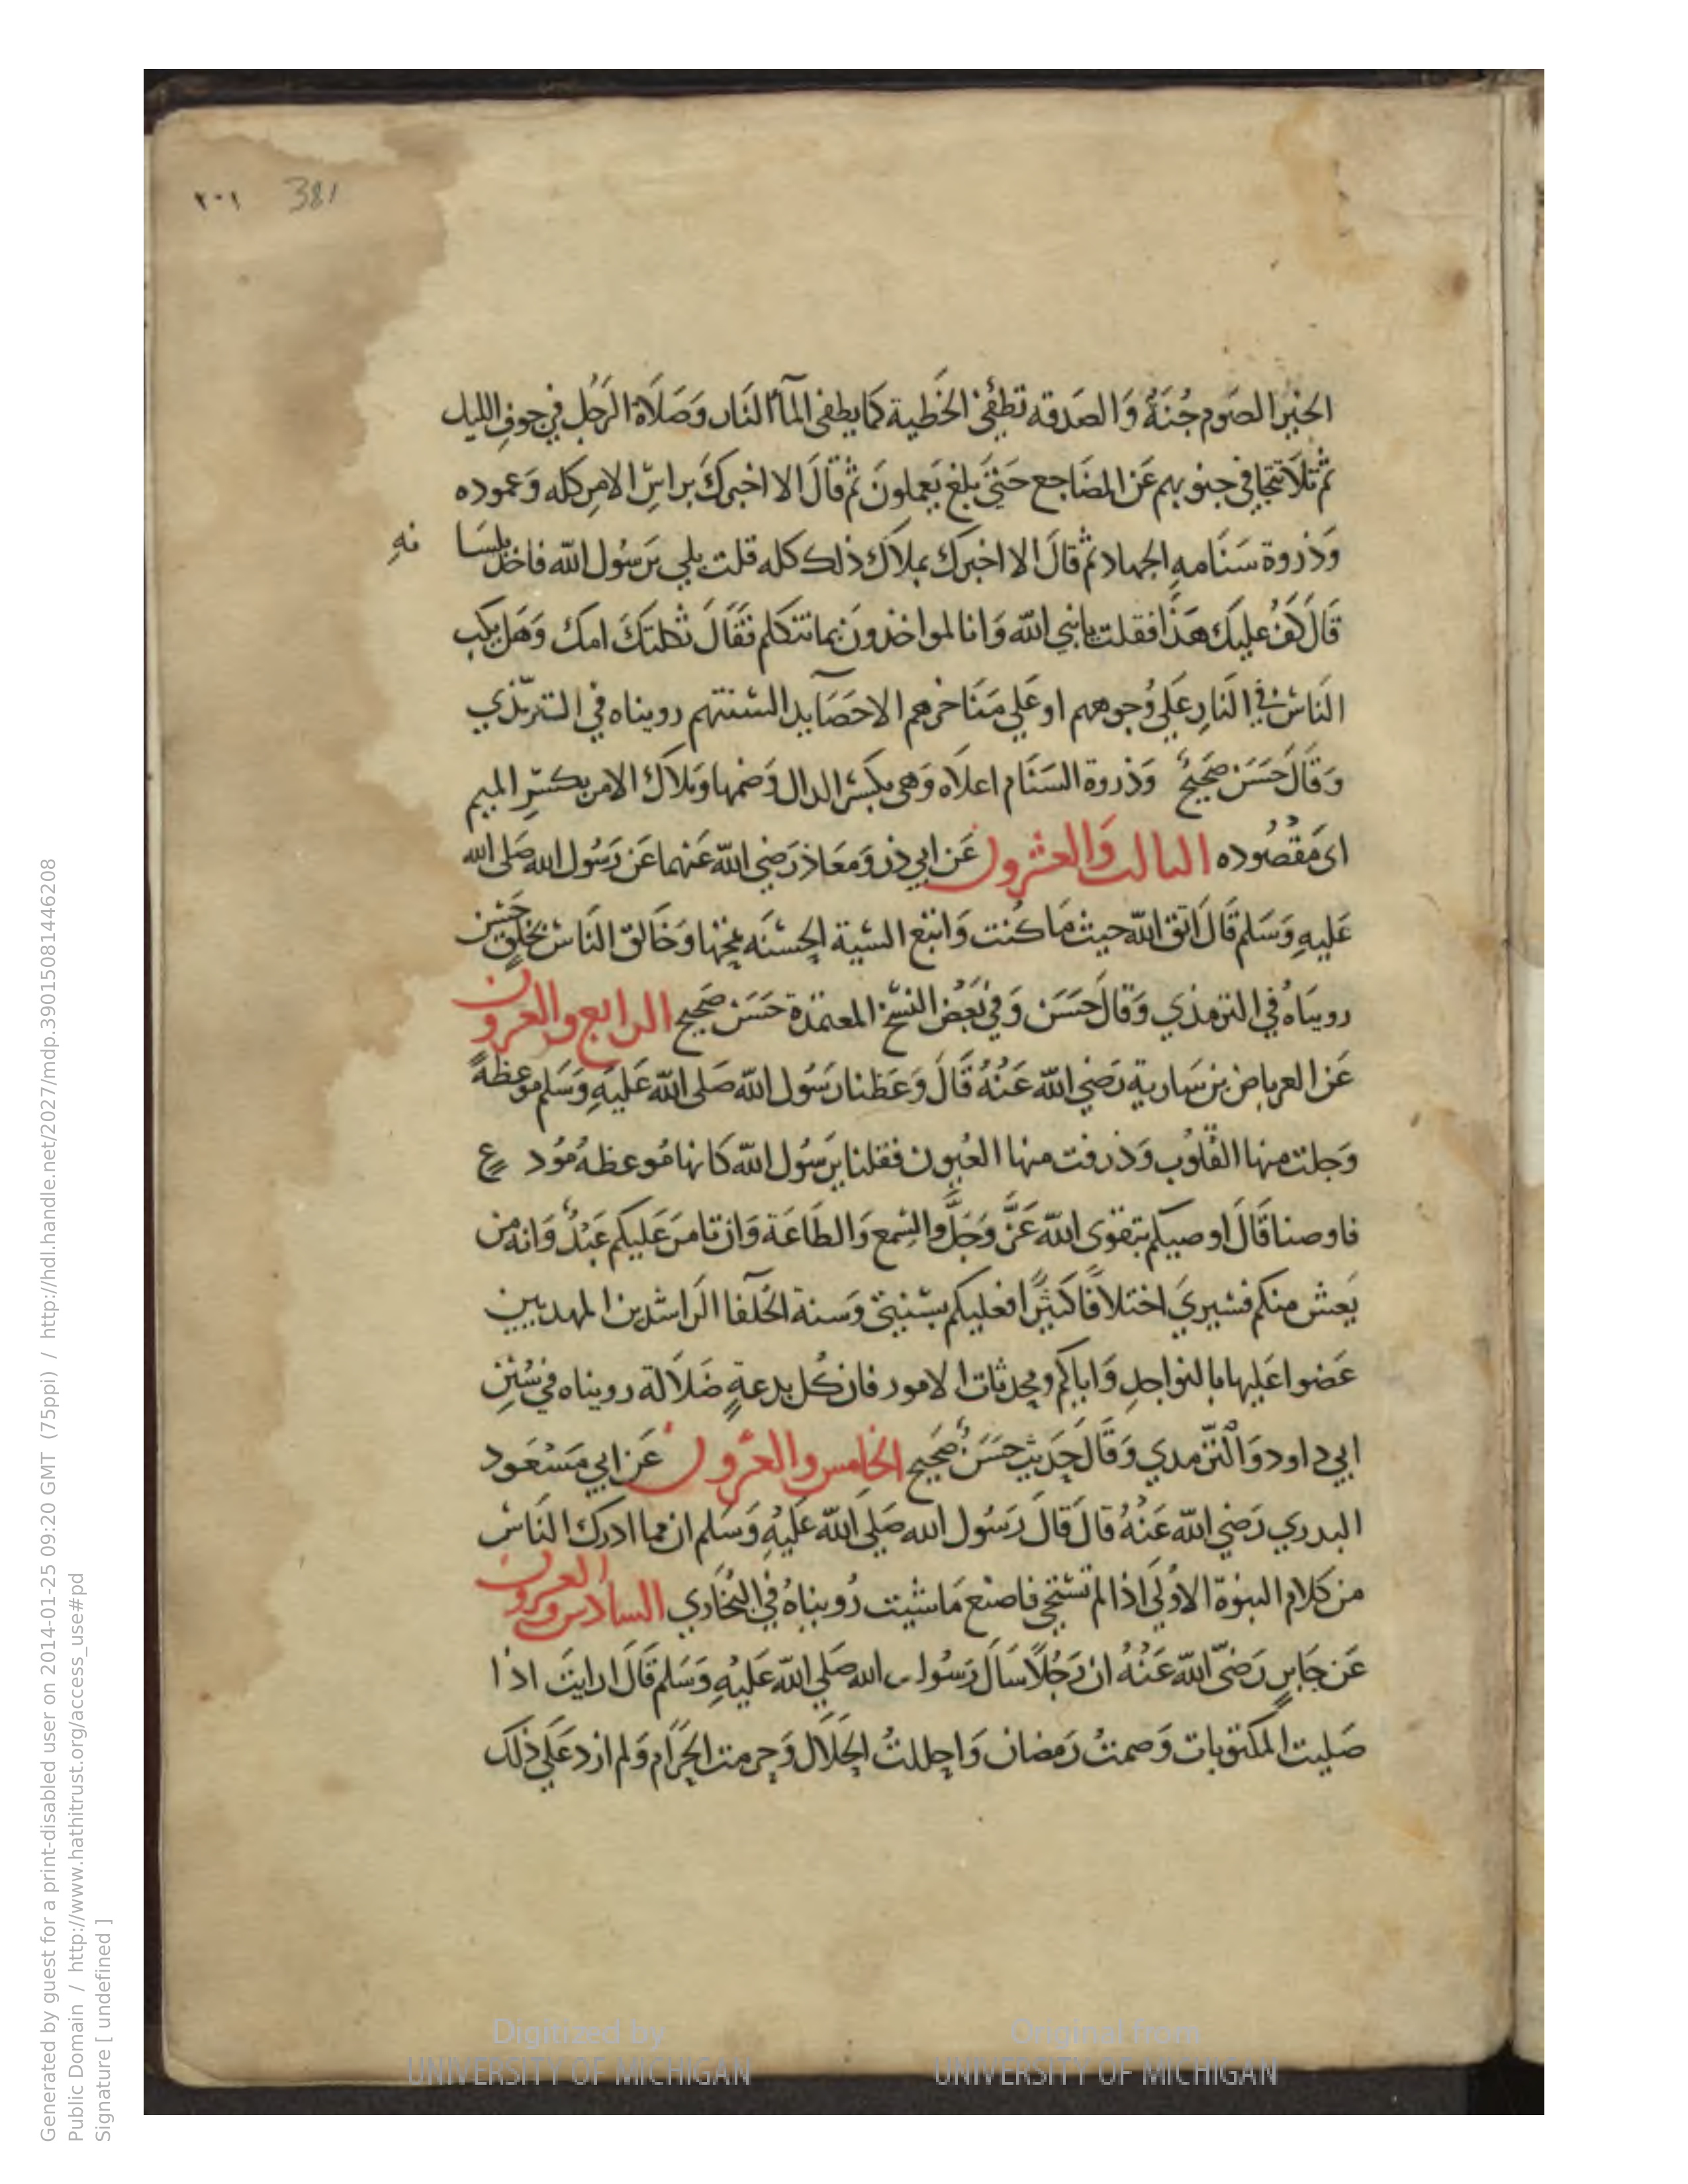 ٢٠١ 381
الخير الصوم جُنَةٌ وَالصَدقه تطفئ الخَطية كَما يطفى المآ النَار وَصَلَاة الرَجُل في جوفِ الليل
ثم تلَا تتجافى جنوبهم عَن المضَاجع حَتىَّ بلغ يَعملونَ ثم قالَ الا اخبركَ براسِ الامرِ كله وَعموده
وَذروة سَنَامهِ الجهاد ثم قالَ الا اخبرك بملاك ذلك كله قلت بلي يَرسُول الله فاخذ بلسَانهِ
قَالَ كَفُ عليكَ هَذا فقلت يا نبي الله وَانا لمواخذونَ بما نتكلم فقَالَ ثكلتكَ امك وَهَل يكب
النَاسَ في النَارِ عَلي وُجوههم او عَلي مَنَاخرهم الا حَصَآيد السنتهم رويناه في الترمذي
وَقَالَ حَسَن صَحيحٌ وَذروة السَنَام اعلَاه وَهى بكسر الدال وَضمها وَملَاك الامر بكسرِ الميم
اى مَقصُوده الثالث وَالعشرون عَن ابي ذر وَمعَاذ رَضي الله عَنهما عَن رَسُول الله صَلى الله
عَليهِ وَسَلم قَالَ اتق الله حيث مَا كنت وَاتبع السَية الحسَنَه تمحها وَخَالق النَاس بخلقٍ حَسَن
رويناهُ في الترمذي وَقالَ حَسَن وَفي بَعض النسَخ المعتمدة حَسَن صَحيح الرابع والعشرون
عَن العرباض بن سَارية رَضي الله عَنهُ قَالَ وَعَظنا رَسُول الله صَلى الله عَليهِ وَسَلم موعظةً
وَجلت منها القُلوُب وَذرفت منها العُيون فقلنا يرَسُول الله كَانها مُوعظة مُودعٍ
فاوصنا قَالَ اوصيكم بتقوى الله عَزَّ وَجَلَّ والسمع وَالطَاعَة وَان تامرَ عَليكم عَبْدٌ وَانه من
يَعش منكم فسيريَ اختلافًا كثيرًا فعليكم بسنتي وَسنة الخلفآ الراشدين المهديين
عَضوا عَليها بالنواجدِ وَاياكم ومحدثات الامور فان كُل بدعةٍ ضَلَالة رويناه في سُنن
ابي داود وَالترمدي وَقَالَ حَديث حسَنٌ صَحيح الخامس والعشرون عَن ابي مَسْعَود
البدري رَضي الله عَنهُ قالَ قالَ رَسُول الله صَلي الله عَليهِ وَسَلم ان مما ادرك النَاس
من كلام النبوة الاوُلَى اذا لم تستحي فاصنع مَا شيت رُويناهُ في البُخَاري السادس والعشرون
عَن جَابرٍ رَضىَ الله عَنهُ ان رَجُلًا سَالَ رَسُول الله صَلي الله عَليهِ وَسَلم قَالَ ارايتَ اذا
صَليت المكتوبات وَصمتُ رَمضان وَاحللتُ الحَلَال وَحرمت الحَرَام وَلم ازد عَلي ذلكَ
Digitized by
UNIVERSITY OF MICHIGAN
Original from
UNIVERSITY OF MICHIGAN
Generated by guest for a print-disabled user on 2014-01-25 09:20 GMT (75ppi) / http://hdl.handle.net/2027/mdp.39015081446208
Public Domain / http://www.hathitrust.org/access_use#pd
Signature [ undefined ]